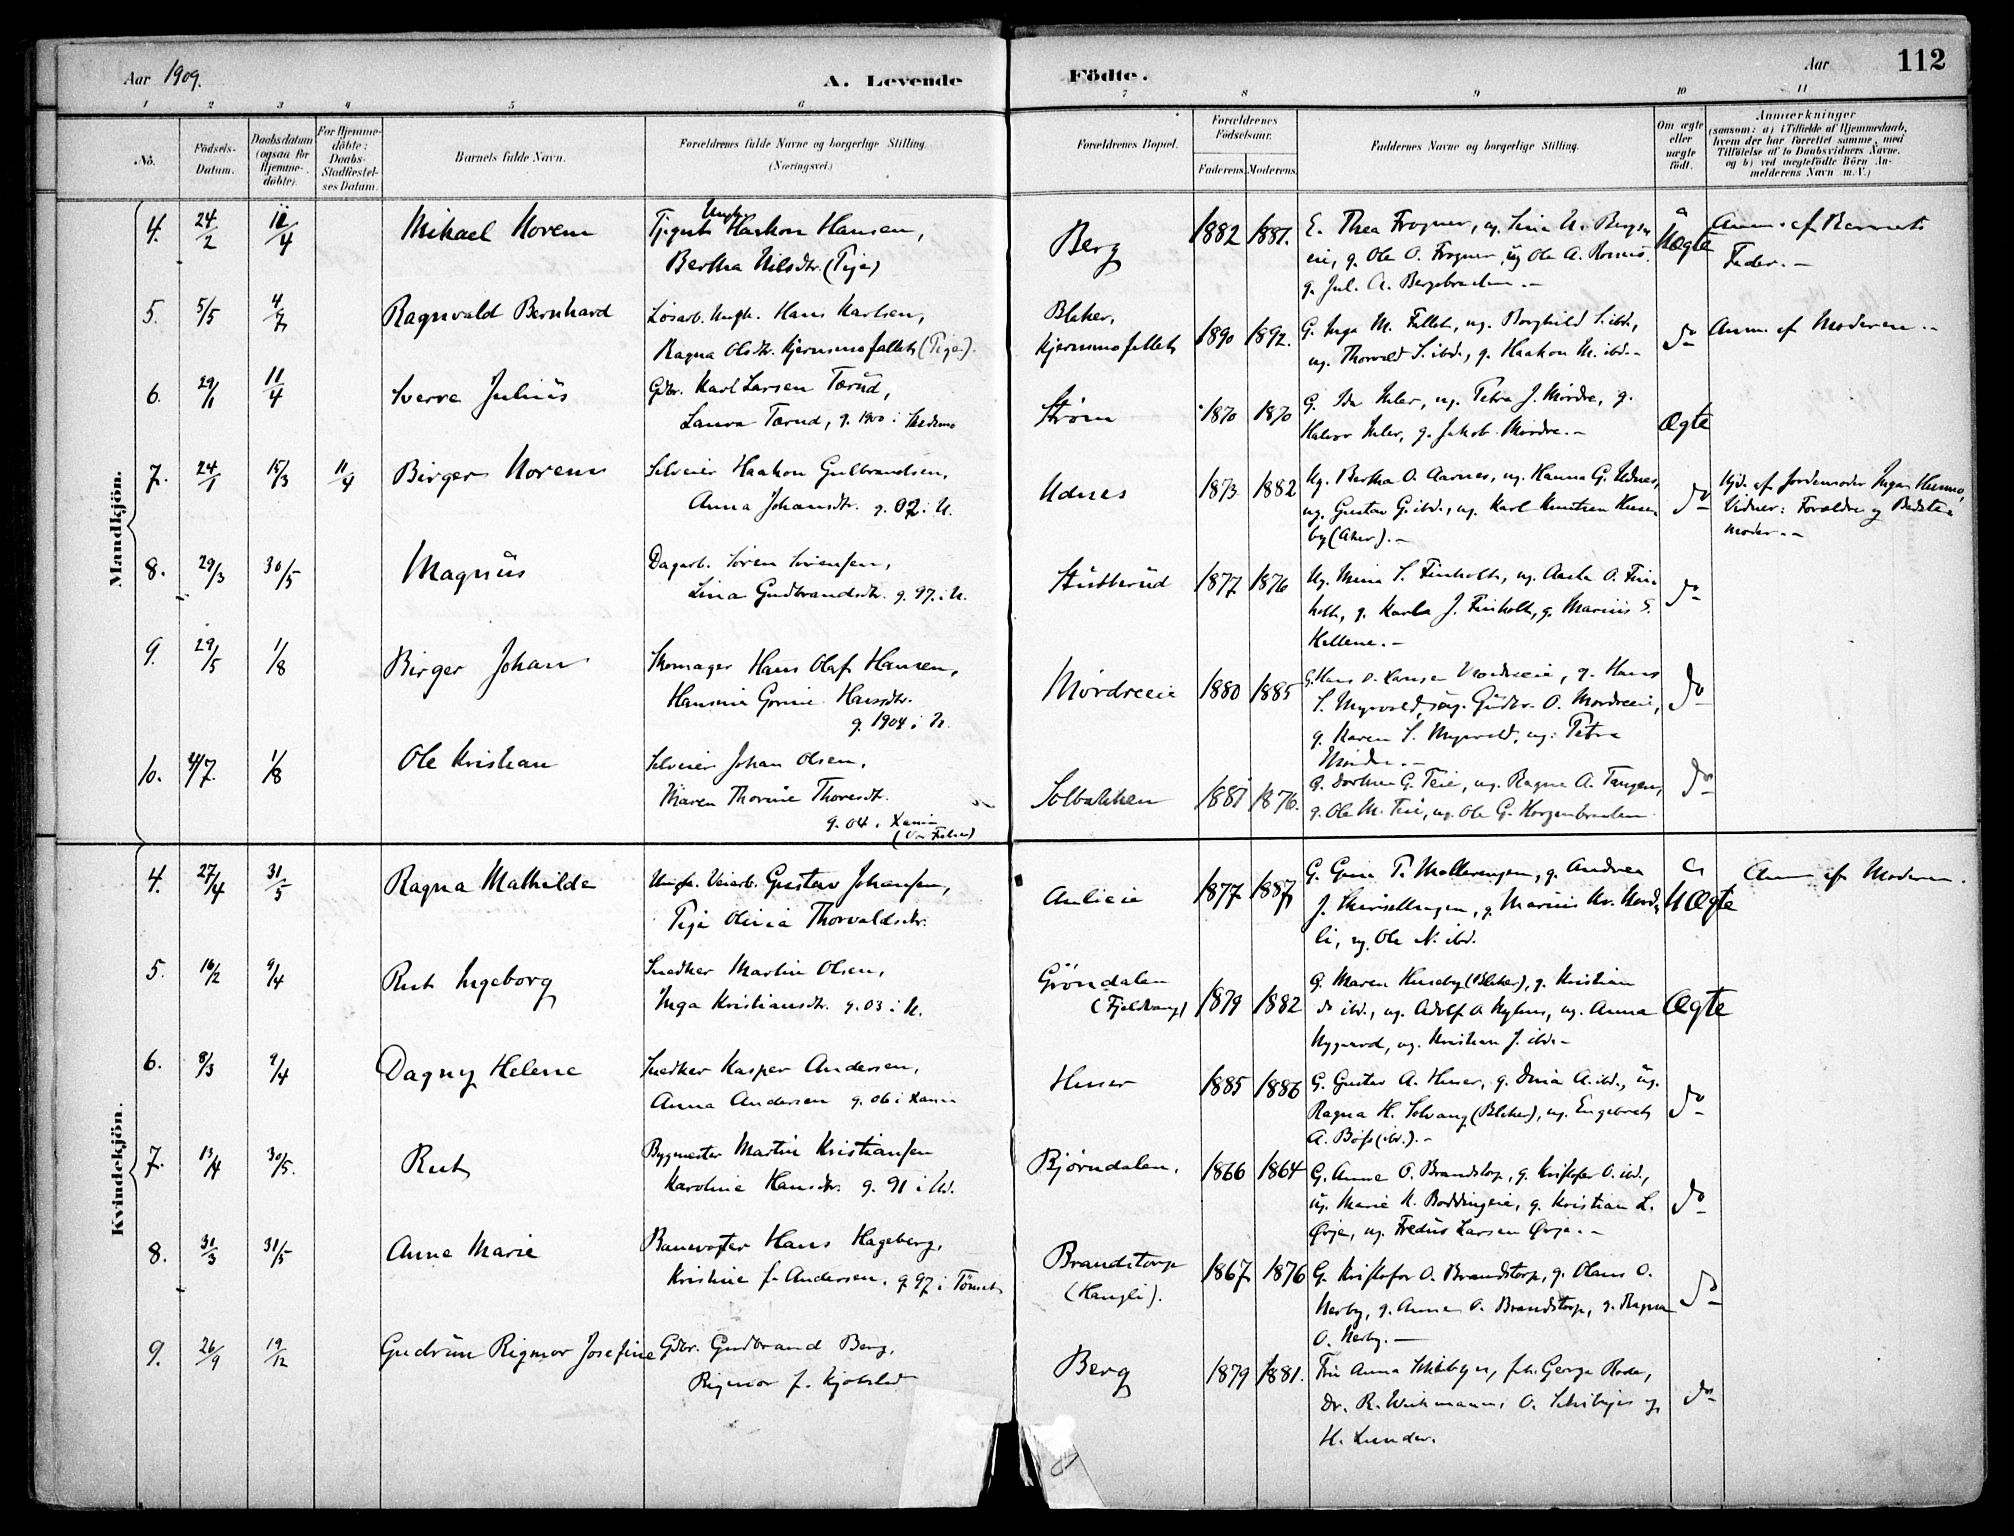 Aar 1909.
A. Levende Födte.
Aar 112
1 2 3 4 5 6 7 8 9 10 11
No.
Födsels-Datum.
Daabsdatum (ogsaa for Hjemme-döbte).
For Hjemme-döbte: Daabs-Stadfæstel-ses Datum.
Barnets fulde Navn.
Forældrenes fulde Navne og borgerlige Stilling (Næringsvei.)
Forældrenes Bopæl.
Forældrenes Födselsaar.
Faderens. Moderens.
Faddernes Navne og borgerlige Stilling.
Om ægte eller uægte födt.
Anmærkninger
(saasom: a) i Tilfælde af Hjemmedaab,
hvem der har forrettet samme, med
Tilföielse af to Daabsvidners Navne.
og b) ved uægtefödte Börn An-
melderens Navn m. V.)
Mandkjön.
4. 24/2 12/4 Mikael Norem
Tjgut Ungk. Haakon Hansen,
Bertha Nilsdtr. (Pige)
Berg 1882 1881.
E. Thea Frogner, ug.
g. Ole O. Frogner, ug. Ole A.
g. Jul. A. Bergebraaten.
Uægte
Anm. af Barnets
Fader.
5. 5/5 4/7 Ragnvald Bernhard
Løsarb. Ungk. Hans Karlsen,
Ragna Olsdtr. Kjernmofallet (Pige).
Blaker,
Kjernmofallet 1890 1892.
G. Inga M. Fallet, ug. Borghild S. ibd.,
ug. Thorvald S. ibd., g. Haakon M. ibd.
do Anm. af Moderen.
6. 29/1 11/4 Sverre Julius
Gbr. Karl Larsen Tærud,
Laura Tærud, g. 1900 i Skedsmo
Strøm 1870 1870
G. Ida Huler, ug. Petra J. Mordre, g.
Halvor Huler, g. Jakob Mordre.
Ægte
7. 24/1 15/3 11/4 Birger Norem
Selveier Haakon Gulbrandsen,
Anna Johansdtr. g. 02 i N.
Udnes 1873 1882
Ug. Bertha O. Aarnes, ug. Hanna G. Udnes,
ug. Gustav G. ibd., ug. Karl Knutsen Huse-
by (Aker).
do
Hjd. af Jordemoder Inga Hermo,
Vidner: Forældre og Bedste-
moder.
8. 29/3 30/5 Magnus
Dagarb. Søren Sørensen,
Lina Gudbrandsdtr. g. 97. i N.
Stubberud 1877 1876
Ug. Mina S. Finholt, ug. Aasta O. Fin-
holt, g. Karla J. Finholt, g. Marius S.
Kellene.
do
9. 29/5 1/8 Birger Johan
Skomager Hans Olaf Hansen,
Hansine Gorine Hansdtr.
g. 1904 i N.
Mordreeie 1880 1885
G. Hans O. Hansen Mordreeie, g. Hans
S. Myrvold, ug. Gudbr. O. Mordreeie,
g. Karen S. Myrvold, ug. Petra
do
10. 1/8 Ole Kristian
Selveier Johan Olsen,
Maren Thorine Thoresdtr.
g. 04 i Xania
(Vor Frelser)
Solbakken 1881 1876.
G. Dorthea G. Teie, ug. Ragna A. Tangen,
g. Ole M. Teie, ug. Ole G. Horgenbraaten.
do
Kvindekjön.
4. 27/4 31/5 Ragna Mathilde
Ungk. Veiarb. Gustav Johansen,
Pige Olivia Thorvaldsdtr.
Aulieie 1877 1887
G. Gina T. Mellerengen, g. Andrea
J., g. Marius Kr. Nord-
li, ug. Ole N. ibd.
Uægte
Anm. af Moderen.
5. 16/2 9/4 Rut Ingeborg
Snedker Martin Olsen,
Inga Kristiansdtr. g. 03 i N.
Grøndalen
(Fjeldvang) 1879 1882
G. Maren Huseby (Blaker), g. Kristian
do ibd., ug. Adolf O. Nyhus, ug. Anna
Nygaard, ug. Kristian J. ibd.
Ægte
6. 8/3 9/4 Dagny Helene
Snedker Kasper Andersen,
Anna Andersen g. 06 i Xania
Huser 1885 1886
G. Gustav A. Huser, g. Dina A. ibd., ug.
Ragna H. Solvang (Blaker), ug. Engebret
A. Bøhs (ibd.).
do
7. 13/4 30/5. Rut
Bygmester Martin Kristiansen
Karoline Hansdtr. g. 91 i Ud.
Bjørndalen, 1866 1864
G. Anne O. Brandstorp, g. Kristofer O. ibd.,
ug. Marie K. Boddingeie, g. Kristian L.
Ørje, ug. Fredrik Larsen Ørje.
do
8. 31/3 31/5 Anne Marie
Banevogter Hans Hageberg,
Kristine f. Andersen, g. 97 i Tönset
Brandstorp
(Haugli). 1867 1876
G. Kristofer O. Brandstorp, g. Olaus O.
Nerby, g. Anne O. Brandstorp, g. Ragna
O. Nerby.
do
9. 26/9 19/12 Gudrun Rigmor Josefine
Gdbr. Gudbrand Berg,
Rigmor f. Kjølstad
Berg 1879 1881.
Fru Anna Schibbye, frk. George Rode,
Dr. R. Wichmann, O. Schibbye og
H. Lunder.
do